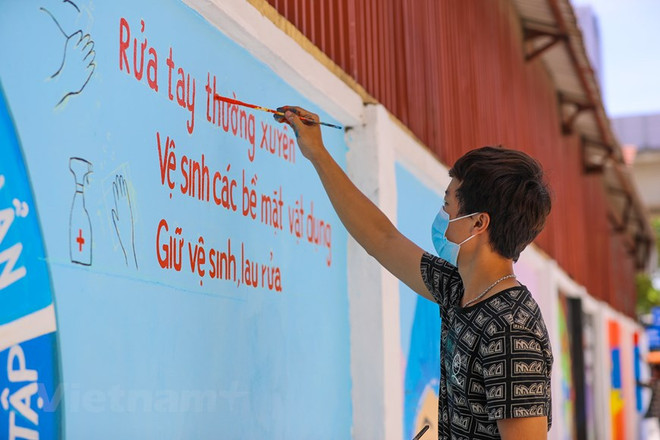 Rửa tay thường xuyên
Vệ sinh các bề mặt vật dụng
Giữ vệ sinh, lau rửa
TẬP
Vietnam+